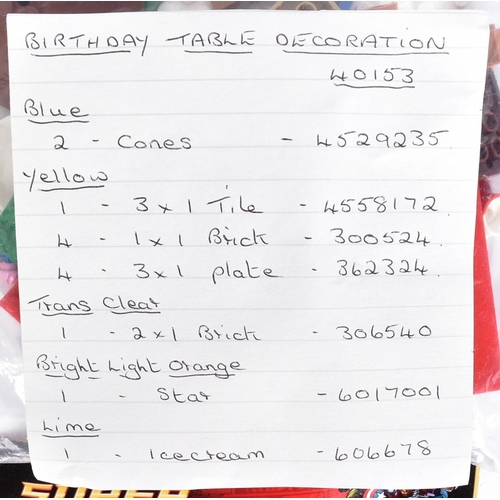 BIRTHDAY TABLE DECORATION
40153
Blue
2 - Cones - 4529235.
Yellow
1 - 3 x 1 Tile - 4558172.
4 - 1 x 1 Brick - 300524.
4 - 3 x 1 plate - 362324.
Trans Clear
1 - 2 x 1 Brick - 306540
Bright Light Orange
1 - Star - 6017001
Lime
1 - Icecream - 606678
SUPER